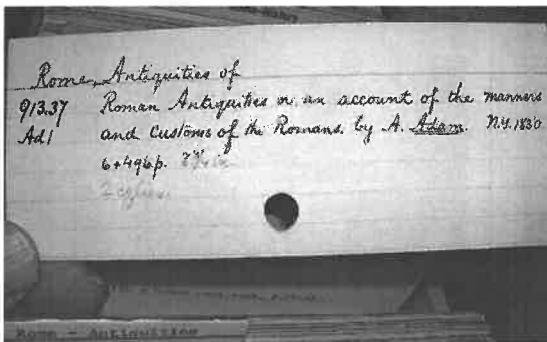 Rome, Antiquities of
913.37 Roman Antiquities or an account of the manners
Ad1 and Customs of the Romans. by A. Adam. N.Y. 1830
6+496p.
2 copies.
Rome - Antiquities